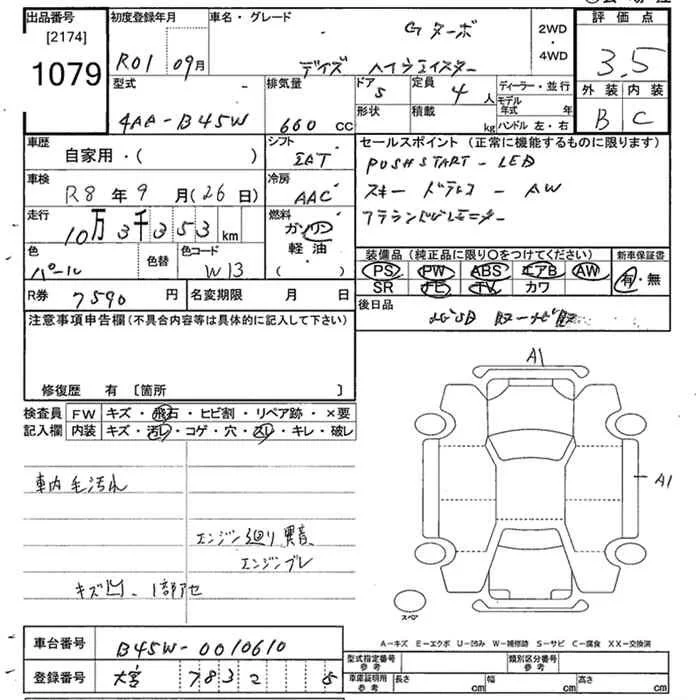 出品番号 初度登録年月 車名・グレード Gターボ 2WD・4WD 評価点
[2174] R01 09月 デイズ ハイウェイスター 3.5
1079 型式 排気量 ドア 定員 ディーラー・並行 外装 内装
4AA-B45W 660 cc 5 4人 モデル年式 年 B C
形状 積載 kg ハンドル 左・右
車歴 自家用・( ) シフト IAT セールスポイント (正常に機能するものに限ります)
PUSHSTART - LED
車検 R8年9月(26日) 冷房 AAC
- AW
走行 10万3千353km 燃料 ガソリン
軽油
( )
色 パール 色替 色コード W13
装備品 (純正品に限り○をつけてください) 新車保証書
PS PW ABS エアB AW 有・無
SR ナビ TV カワ
R券 7590円 名変期限 月 日
後日品
注意事項申告欄(不具合内容等は具体的に記入して下さい)
修復歴 有 [箇所 ]
A1
検査員 FW キズ・飛石・ヒビ割・リペア跡・×要
記入欄 内装 キズ・汚レ・コゲ・穴・スレ・キレ・破レ
A1
車内 毛汚れ
エンジン廻り 異音
エンジンブレ
キズ凹、1部アセ
スペア
A-キズ E-エクボ U-凹み W-補修跡 S-サビ C-腐食 XX-交換済
車台番号 B45W-0010610
型式指定番号 参考 類別区分番号 参考
登録番号 大宮 7832 る
車庫証明用 参考 長さ cm 幅 cm 高さ cm